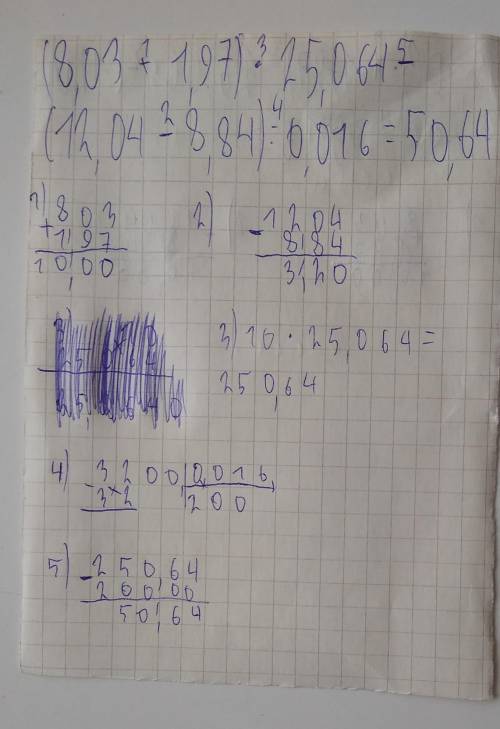 (8,03 + 1,97) · 25,064 -
1 3 5
(12,04 - 8,84) : 0,016 = 50,64
2 4
1) 803
+ 1,97
10,00
2) - 1204
8,84
3,20
3) 10 · 25,064 =
250,64
4) - 3200, 0,016,
32 200
5) - 250,64
200,00
50,64